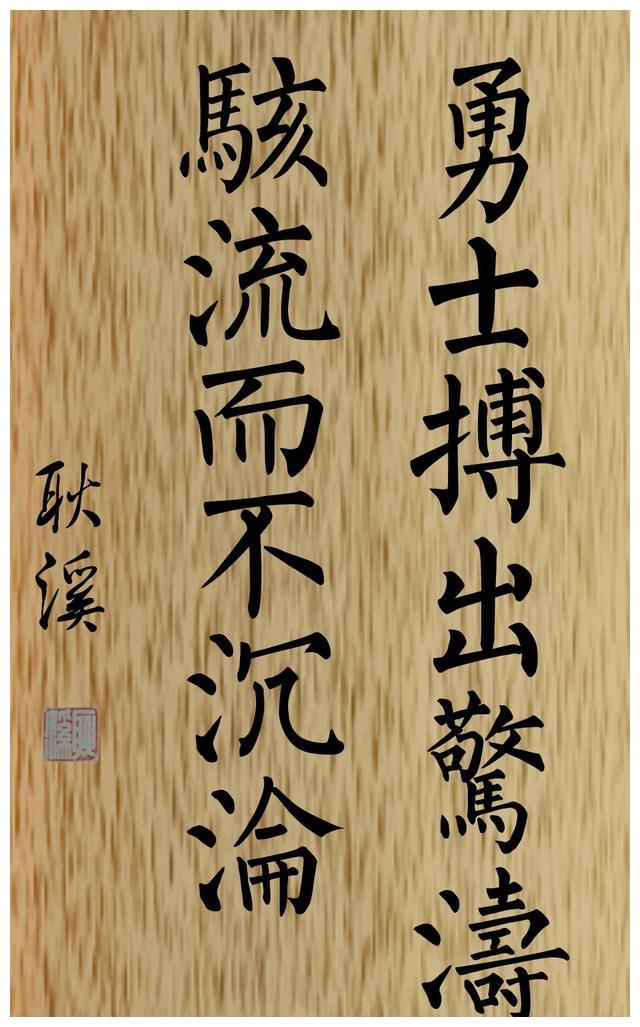 勇士搏出驚濤
駭流而不沉淪
耿溪